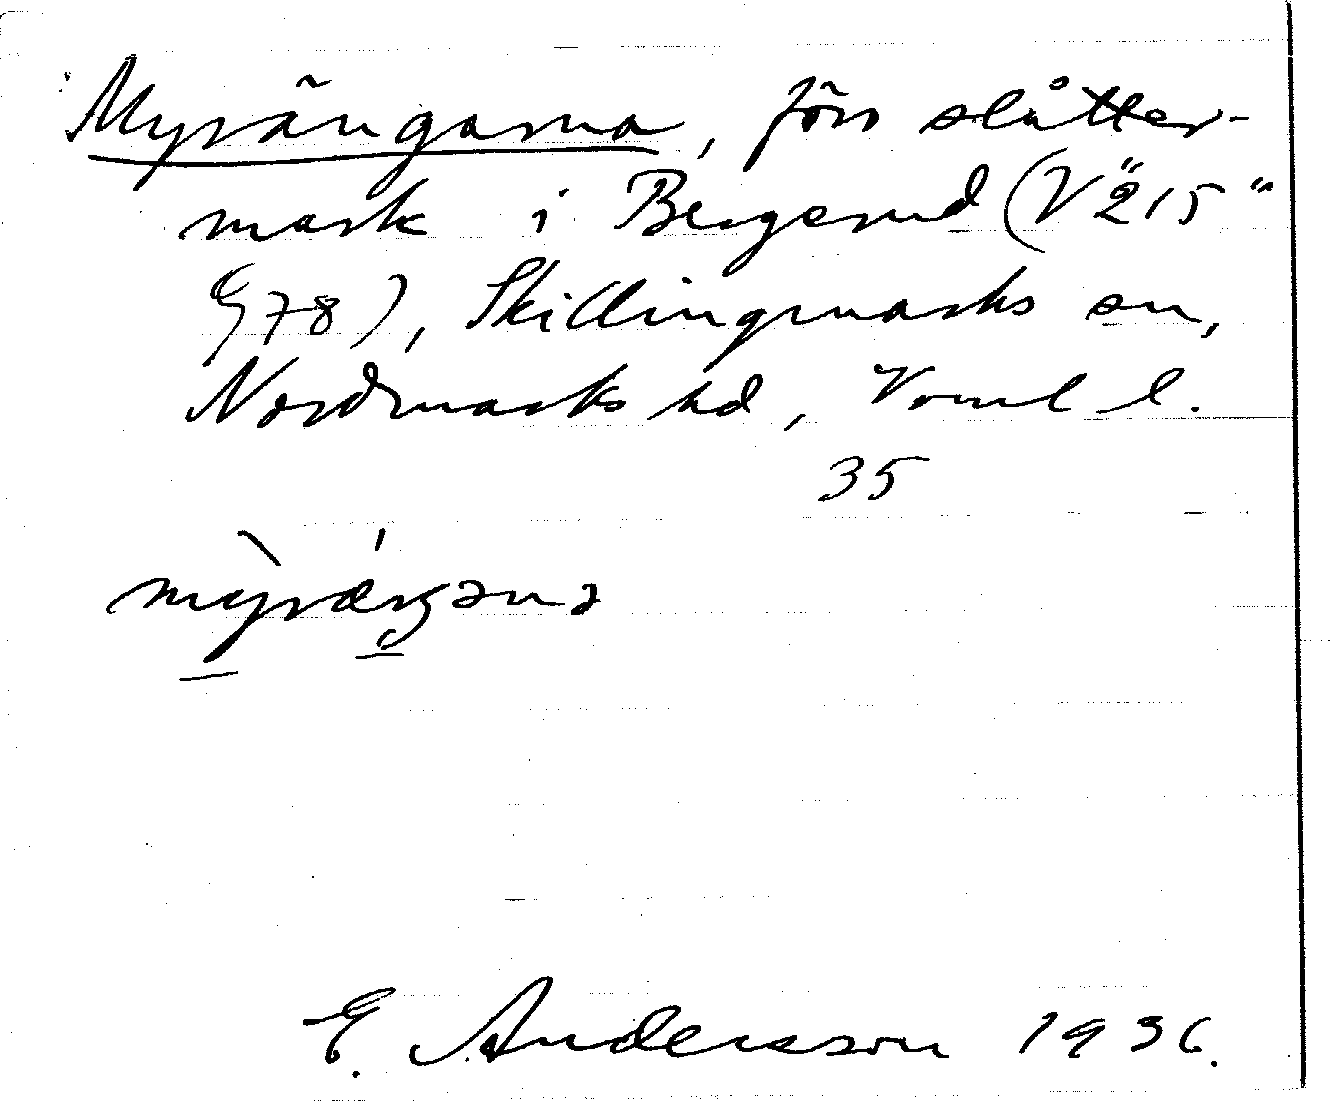 Myrängarna, förr slåtter-
mark i Bergerud (V "215"
G 78), Skillingmarks sn,
Nordmarks hd, Värml l.
35
E. Andersson 1936.